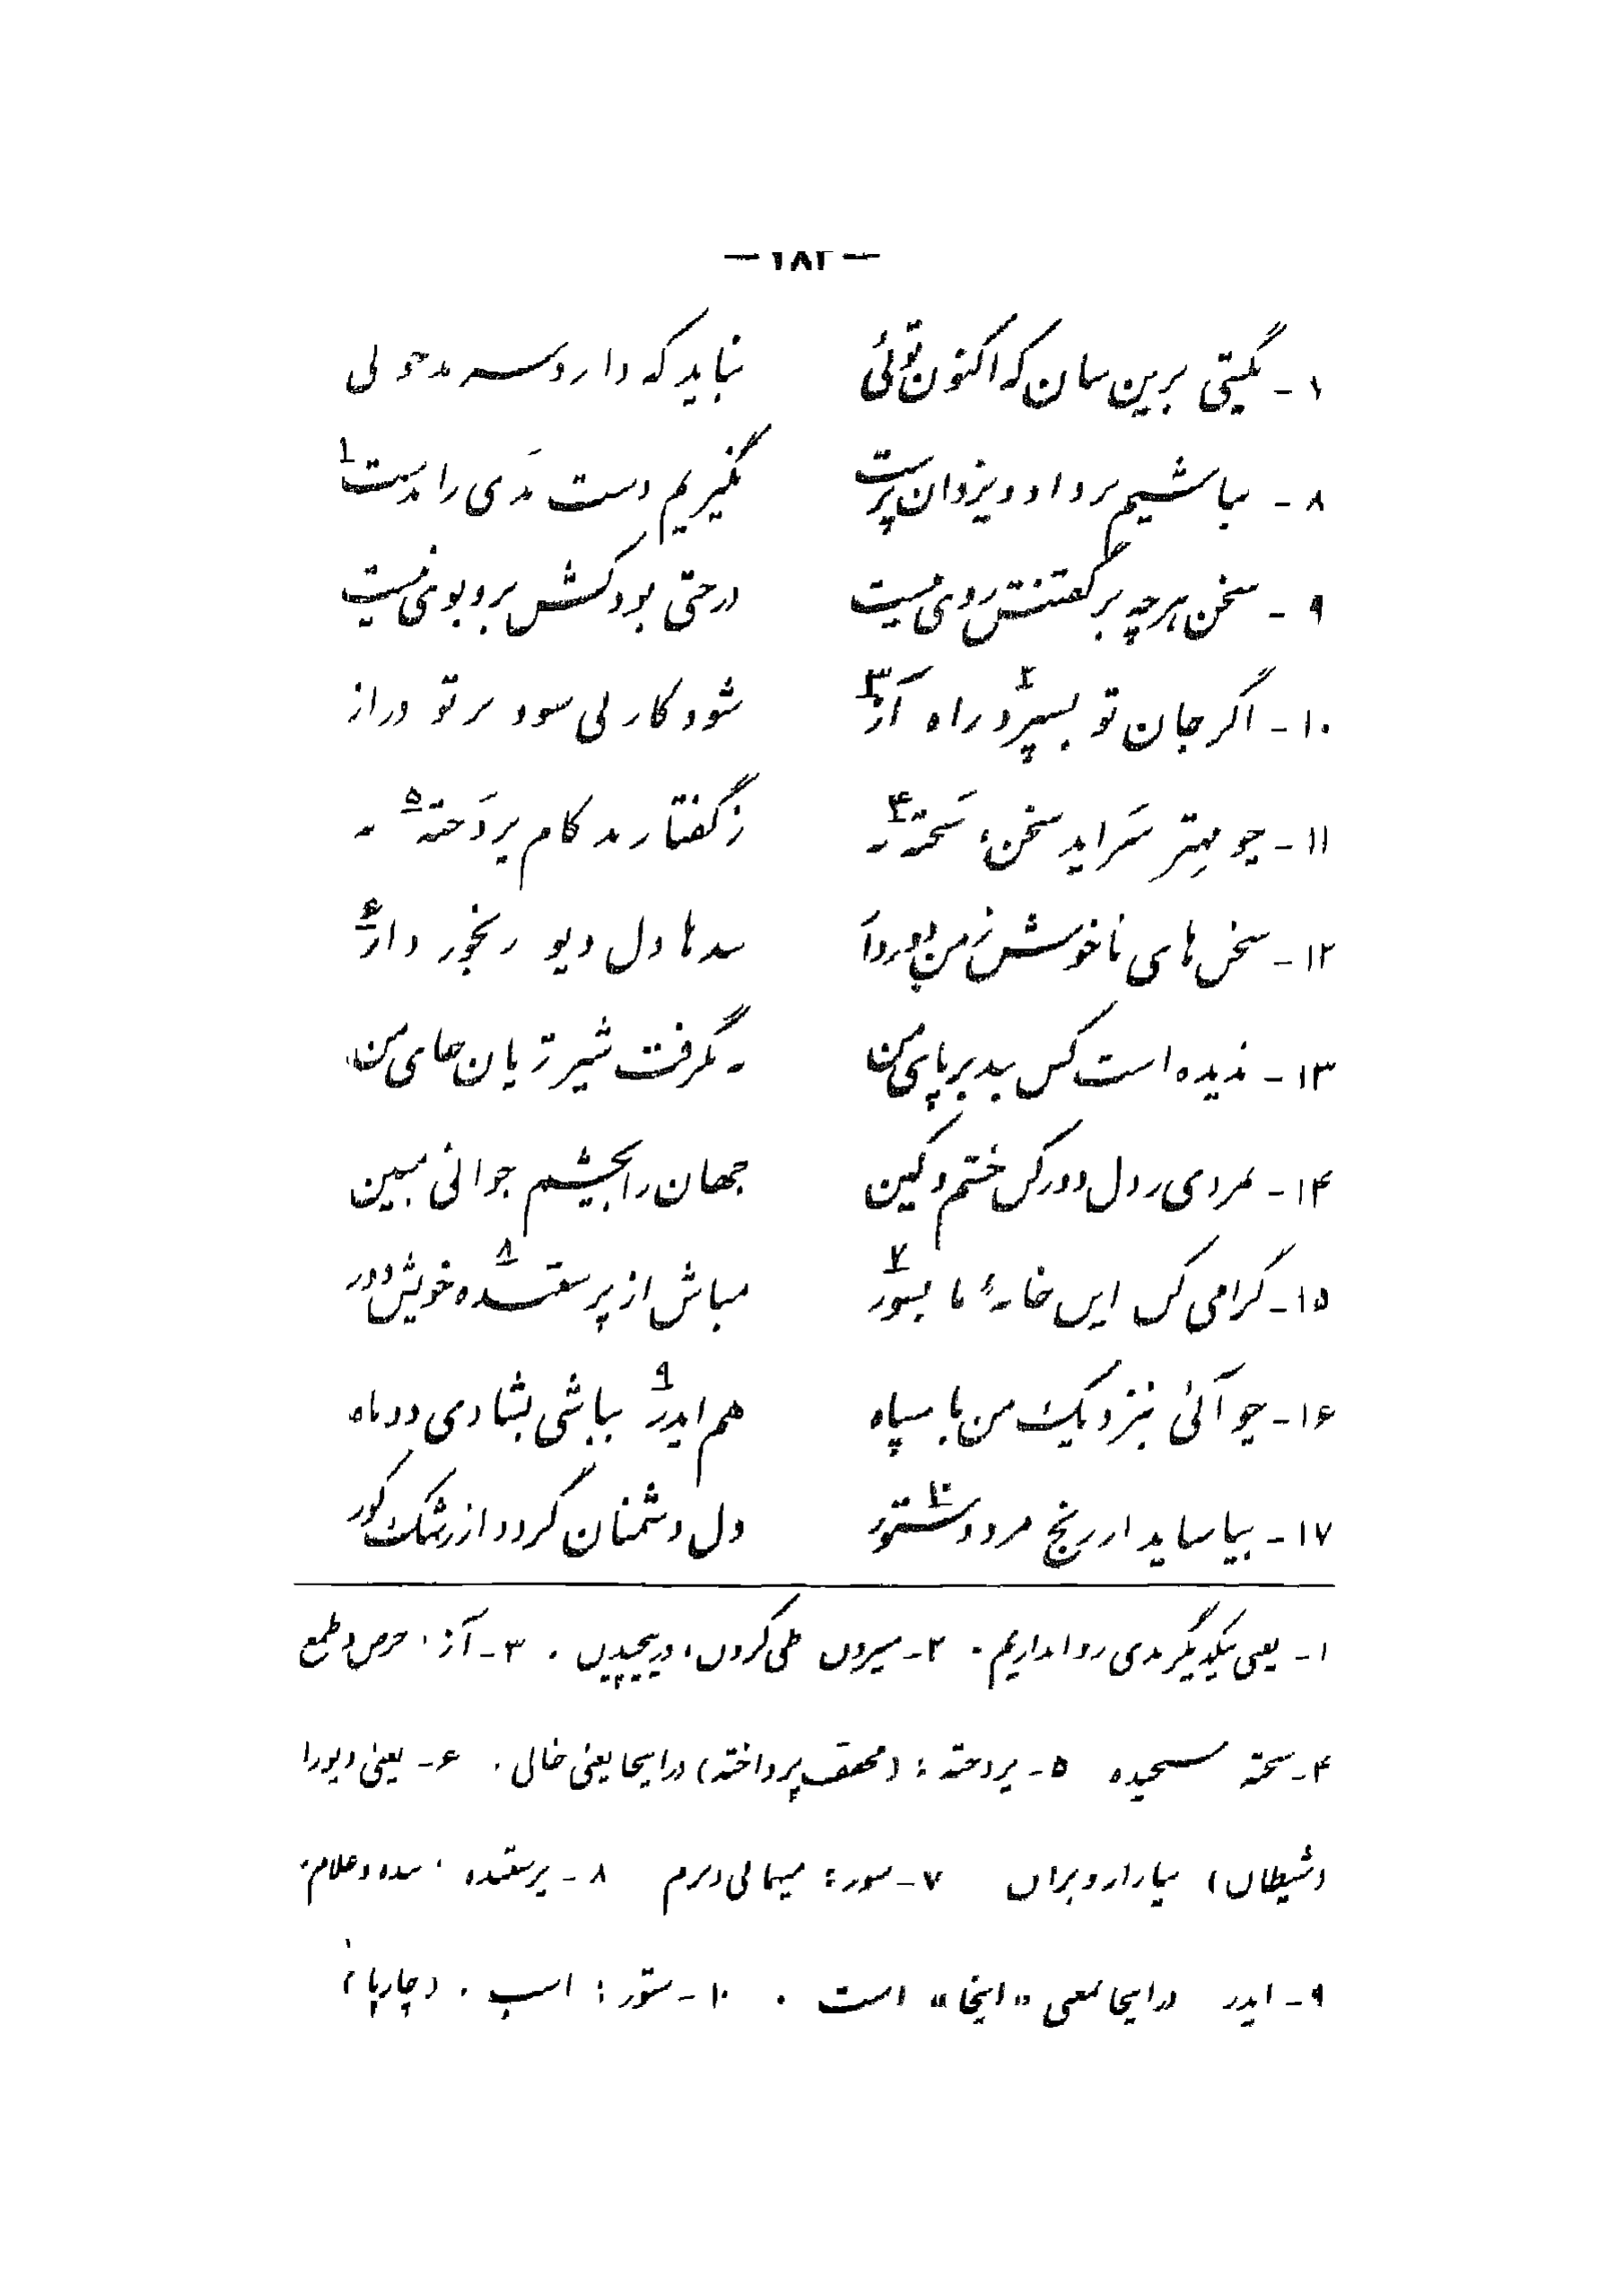 — ۱۸۲ —
۱- بگیتی برین سان که اکنون توئی    نباید که دارد سر بدخوئی
۸- بباشیم بر داد و یزدان پرست    نگیریم دست بَدی را بدست۱
۹- سخن هر چه بر گفتنش روی نیست    درختی بود کش بر و بوی نیست
۱۰- اگر جان تو بسپرد۲ راه آز۳    شود کار بی سود بر تو دراز
۱۱- چو مهتر سَراید سخن، سَخته۴ به    ز گفتار بد کام پردَخته۵ به
۱۲- سخن های ناخوش ز من دور دار    ببدها دل دیو رنجور دار۶
۱۳- ندیده است کس بند بر پای من    نه بگرفت شیر ژیان جای من
۱۴- بمردی ز دل دور کن خشم و کین    جهان را بچشم جوانی مبین
۱۵- گرامی کن این خانهٔ ما بسور۷    مباش از پرستنده۸ خویش دور
۱۶- چو آئی بنزدیک من با سپاه    هم ایدر۹ بباشی بشادی دو ماه
۱۷- بیاساید از رنج مرد و ستور۱۰    دل دشمنان گردد از رشک کور
۱- یعنی بیکدیگر بدی روا نداریم. ۲- سپردن طی کردن، در پیچیدن. ۳- آز، حرص و طمع
۴- سخته سنجیده ۵- پردخته: (مخفف پرداخته) در اینجا یعنی خالی. ۶- یعنی دیو را
(شیطان) بیازار و بران ۷- سور: میهمانی و بزم ۸- پرستنده، بنده و غلام،
۹- ایدر در اینجا بمعنی «اینجا» است. ۱۰- ستور: اسب. (چارپا)